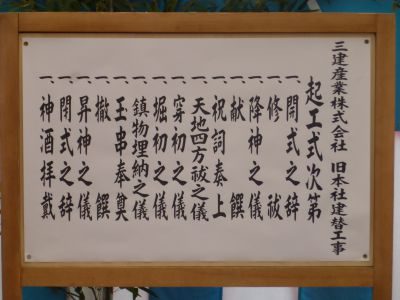 三建産業株式会社 旧本社建替工事
起工式次第
一、開式之辞
一、修祓
一、降神之儀
一、献饌
一、祝詞奏上
一、天地四方祓之儀
一、穿初之儀
一、堀初之儀
一、鎮物埋納之儀
一、玉串奉奠
一、撤饌
一、昇神之儀
一、閉式之辞
一、神酒拝戴